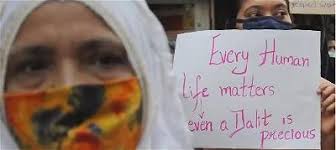 Every Human
life matters
even a Dalit is
precious